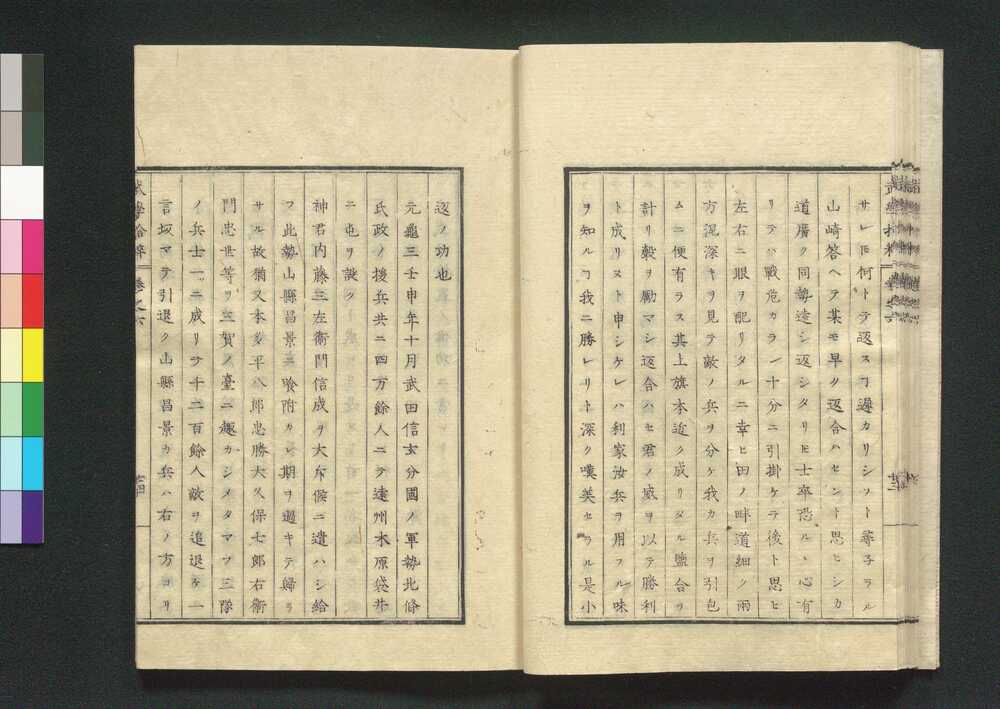 サレ𪜈何トテ返スヿ遲カリシソト尋子ラル
山崎答ヘテ某モ早ク返合ハセント思ヒシカ
道廣ク同勢遠シ返シタリ𪜈士卒恐ルヽ心有
リテハ戰危カラン十分ニ引掛ケテ後ト思ヒ
左右ニ眼ヲ配リタルニ幸ヒ田ノ畔道細ク兩
方泥深キヲ見テ敵ノ兵ヲ分ケ我カ兵ヲ引包
ムニ便有ラス其上旗本近ク成リタル塩合ヲ
計リ毅ヲ勵マシ返合ハセ君ノ威ヲ以テ勝利
ト成リヌト申シケレハ利家汝兵ヲ用フル味
ヲ知ルヿ我ニ勝レリト深ク嘆美セラル是小
返ノ功也
元龜三壬申年十月武田信玄分國ノ軍勢北條
氏政ノ援兵共ニ四万餘人ニテ遠州木原袋井
ニ屯ヲ設ク
神君内藤三左衛門信成ヲ大斥候ニ遣ハシ給
フ此勢山縣昌景ニ喰附カレ期ヲ過キテ歸ラ
サル故猶又本多平八郎忠勝大久保七郎右衛
門忠世等ヲ三賀ノ臺ニ趣カシメタマフ三隊
ノ兵士一ニ成リテ千二百餘人敵ヲ追退ケ一
言坂マテ引退ク山縣昌景カ兵ハ右ノ方ヨリ